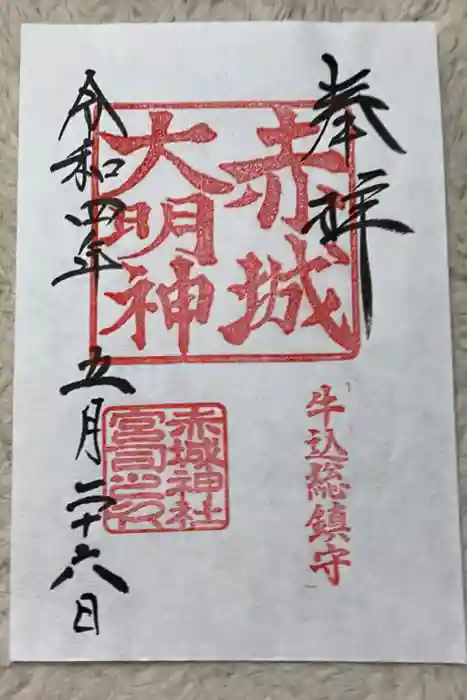 奉拝
赤城
大明神
牛込総鎮守
赤城神社
宮司之印
令和四年
五月二十六日